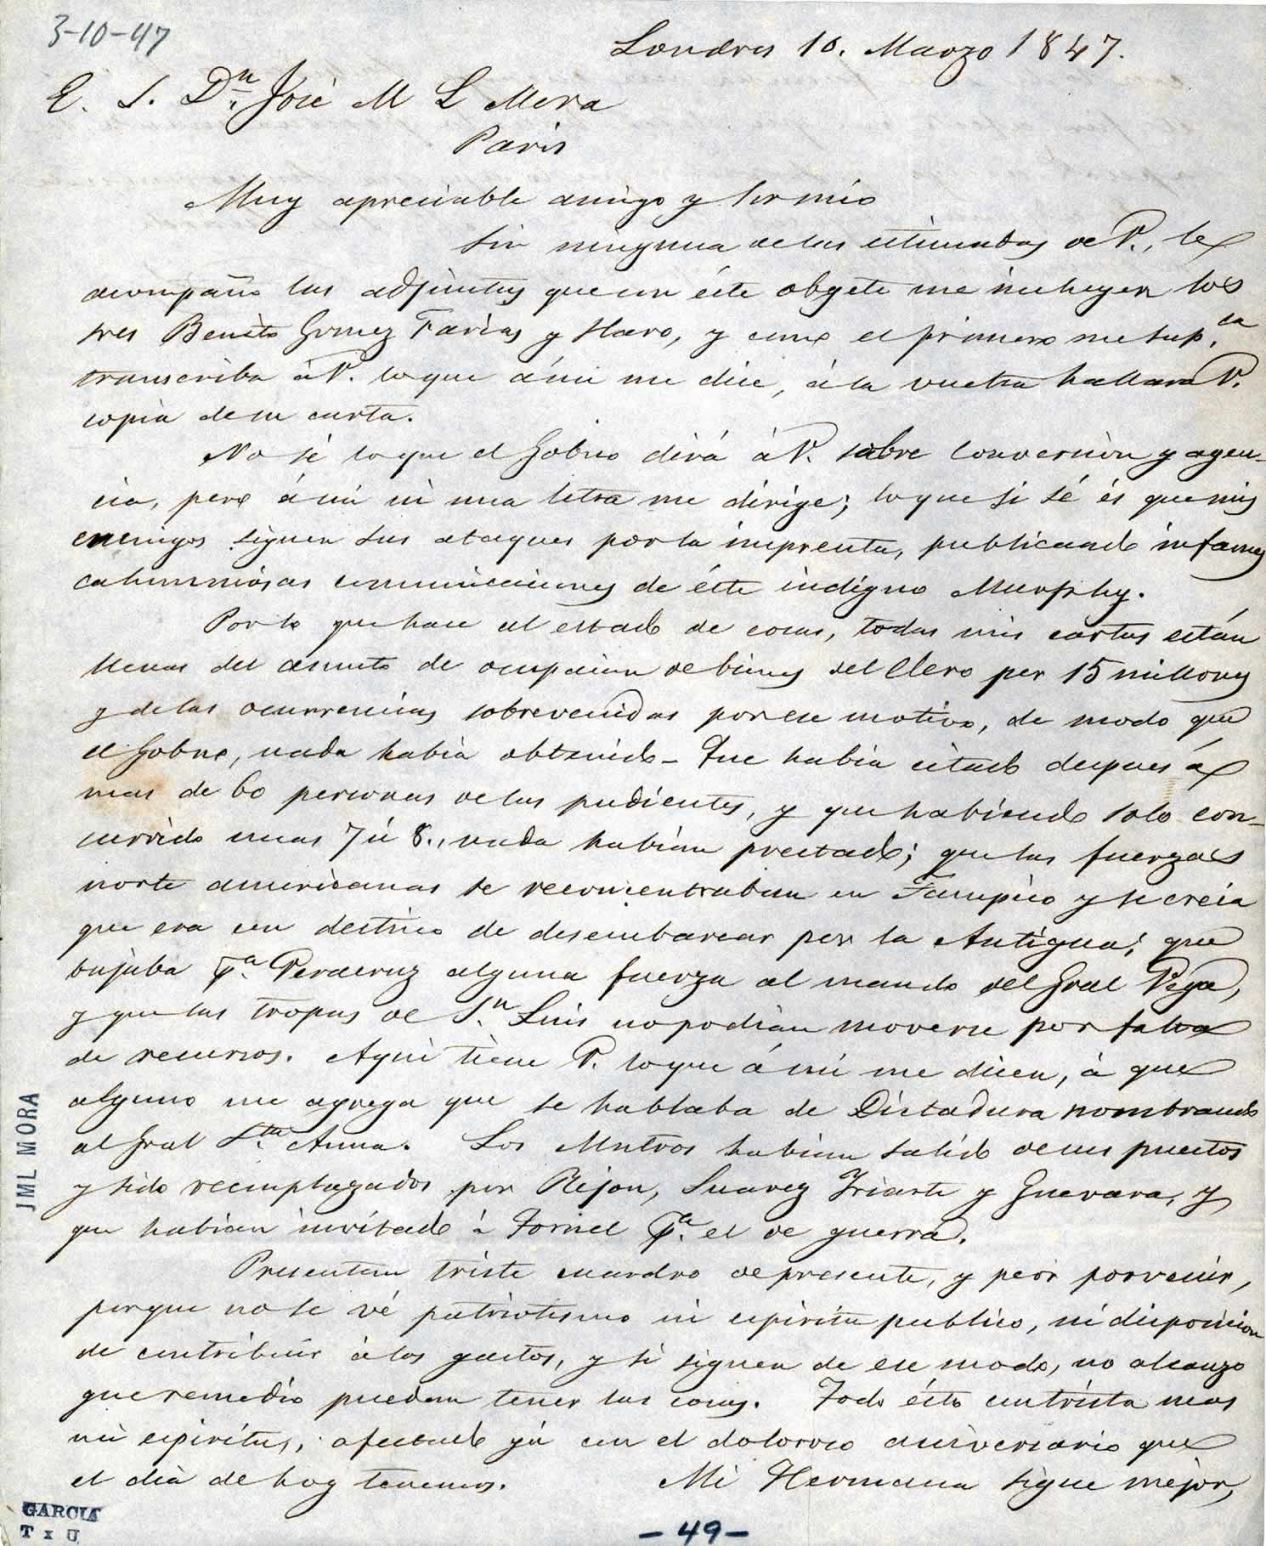 3-10-47
Londres 10. Marzo 1847.
E. S. Dn. José M L Mora
Paris
Muy apreciable amigo y Sor mio
Sin ninguna de las estimadas de V., le
acompaño las adjuntas que con éste obgeto me incluyen los
sres Benito Gomez Farías y Haro, y como el primero me sup.ca
transcriba à V. lo que á mi me dice, á la vuelta hallara V.
copia de su carta.
No sé lo que el Gobno dirá à V. sobre Conversion y agen-
cia, pero á mi ni una letra me dirige; lo que si sé és que mis
enemigos siguen sus ataques por la imprenta, publicando infames
calumniosas comunicaciones de éste indigno Murphy.
Por lo que hace al estado de cosas, todas mis cartas están
llenas del asunto de ocupacion de bienes del Clero por 15 millones
y de las ocurrencias sobrevenidas por ese motivo, de modo que
el Gobno, nada habia obtenido- Que habia citado despues á
mas de 60 personas de las pudientes, y que habiendo solo con-
currido unas 7 ú 8., nada habian prestado; que las fuerzas
norte americanas se reconcentraban en Tampico y se creia
que era con destino de desembarcar por la Antigua; que
bajaba pa. Veracruz alguna fuerza al mando del Gral Vega,
y que las tropas de Sn. Luis no podian moverse por falta
de recursos. Aqui tiene V. lo que á mi me dicen, à que
alguno me agrega que se hablaba de Dictadura nombrando
al Gral Sta. Anna. Los Mntros habian salido de sus puestos
y sido reemplazados por Rejon, Suarez Iriarte y Guevara, y
que habian invitado à Tornel pa. el de guerra.
Presentan triste cuadro de presente, y peor porvenir,
porque no se vé patriotismo ni espiritu publico, ni disposicion
de contribuir à los gastos, y si siguen de ese modo, no alcanzo
que remedio puedan tener las cosas. Todo ésto contrista mas
mi espiritu, afectado yá con el doloroso aniversario que
el dia de hoy tenemos. Mi Hermana sigue mejor,
JML MORA
GARCIA
T x U
- 49 -